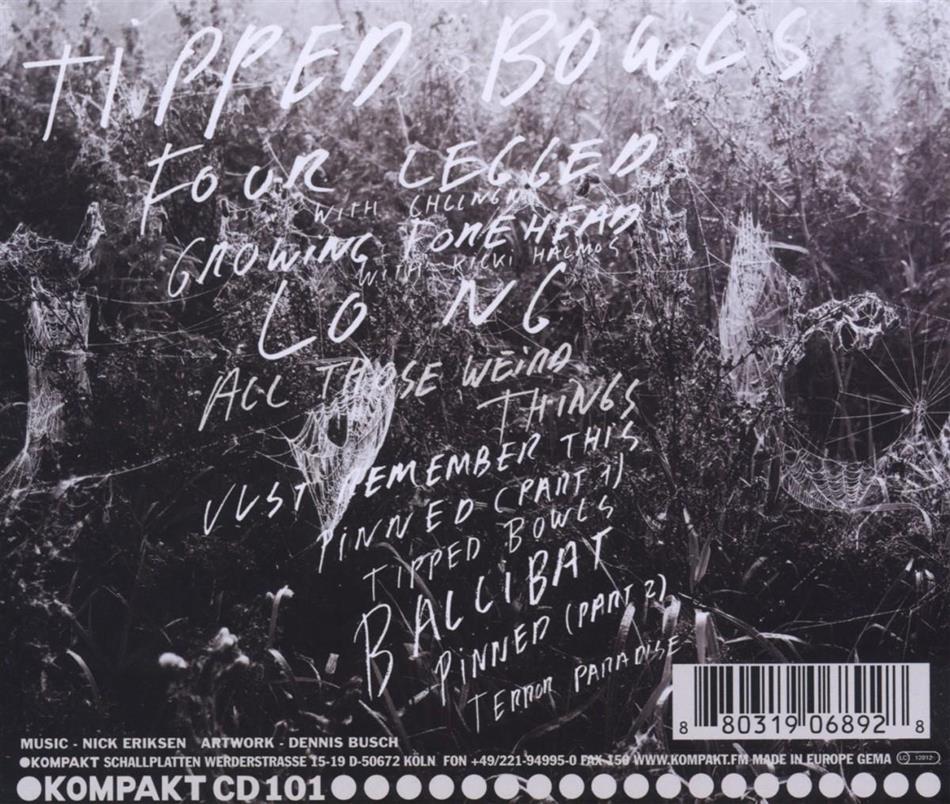 TIPPED BOWLS
FOUR LEGGED
WITH
GROWING FOREHEAD
WITH KICKI HALMOS
LO NG
ALL THOSE WEIRD
THINGS
JUST REMEMBER THIS
PINNED (PART 1)
TIPPED BOWLS
BALLIBAT
PINNED (PART 2)
TERROR PARADISE
8 80319 06892 8
MUSIC - NICK ERIKSEN ARTWORK - DENNIS BUSCH
KOMPAKT SCHALLPLATTEN WERDERSTRASSE 15-19 D-50672 KÖLN FON +49/221-94995-0 FAX-150 WWW.KOMPAKT.FM MADE IN EUROPE GEMA LC
KOMPAKT CD 101